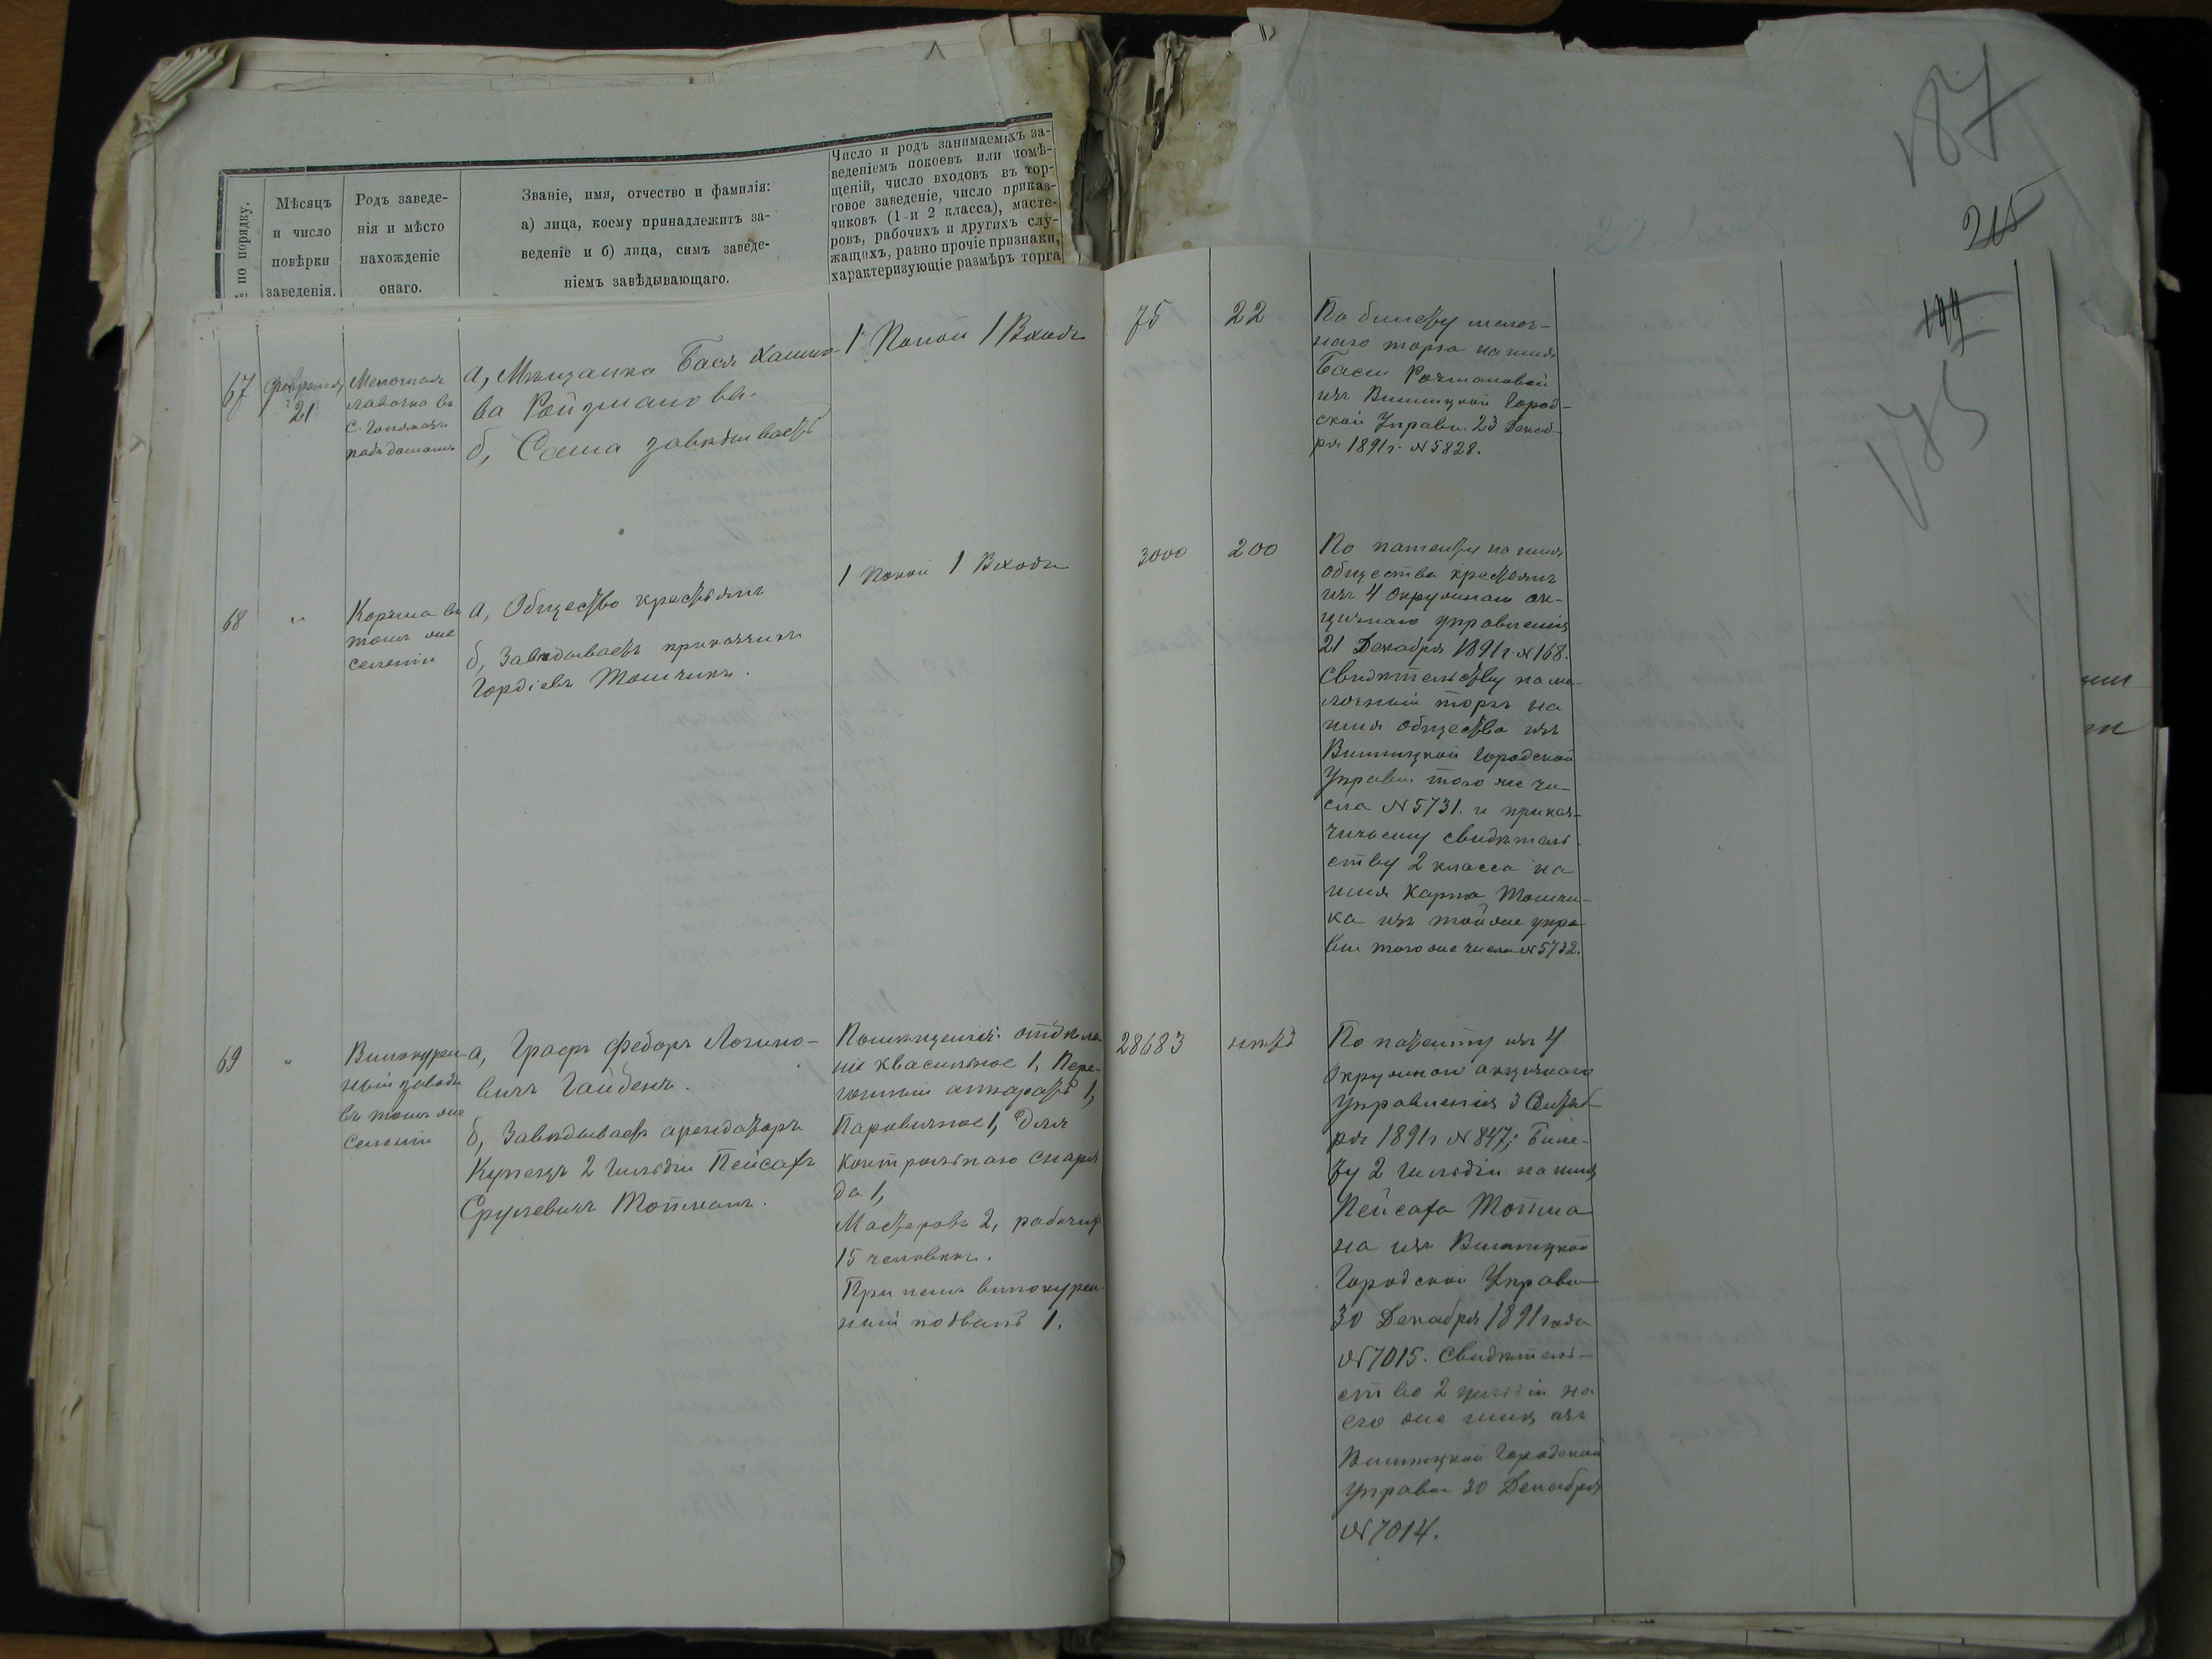 № по порядку.
Мѣсяцъ
и число
повѣрки
заведенія.
Родъ заведе-
нія и мѣсто
нахожденіе
онаго.
Званіе, имя, отчество и фамилія:
а) лица, коему принадлежитъ за-
веденіе и б) лица, симъ заведе-
ніемъ завѣдывающаго.
Число и родъ занимаемыхъ за-
веденіемъ покоевъ или помѣ-
щеній, число входовъ въ тор-
говое заведеніе, число приказ-
чиковъ (1 и 2 класса), масте-
ровъ, рабочихъ и другихъ слу-
жащихъ, равно прочіе признаки,
характеризующіе размѣръ торга
187
215
199
185
67
Февраля
21
Мелочная
лавочка въ
с.
подъ домомъ
а, Мѣщанка Бася Хаимо-
ва Ройзманова.
б, Сама завѣдываетъ
1 Покой 1 Входъ
75
22
По билету мелоч-
наго торга на имя
Баси Розмановой
изъ Винницкой Город-
ской Управы 23 Декаб-
ря 1891 г. № 5828.
68
"
Корчма въ
томъ же
селеніи
а, Общество крестьянъ
б, Завѣдываетъ приказчикъ
Гордіевъ Томчикъ.
1 Покой 1 Входъ
3000
200
По патенту на имя
общества крестьянъ
изъ 4 Окружнаго ак-
цизнаго управленія
21 Декабря 1891 г. № 168.
Свидѣтельству на ме-
лочный торгъ на
имя общества изъ
Винницкой Городской
Управы того же чи-
сла № 5731. и приказ-
чичьему свидѣтель-
ству 2 класса на
имя Карпа Томчи-
ка изъ той же упра-
вы того же числа № 5732.
69
"
Винокурен-
ный заводъ
въ томъ же
селеніи
а, Графъ Федоръ Логино-
вичъ Гайденъ.
б, Завѣдываетъ арендаторъ
Купецъ 2 Гильдіи Пейсахъ
Срулевичъ Тотманъ.
Помѣщеній: отдѣле-
ніе квасильное 1, Пере-
гонный аппаратъ 1,
Паровичное 1, Для
контрольнаго снаря
да 1,
Мастеровъ 2, рабочихъ
15 человѣкъ.
При немъ винокурен-
ный подвалъ 1.
28683
нѣтъ
По патенту изъ 4
Окружного акцизнаго
Управленія 3 Сентяб-
ря 1891 г № 847; Биле-
ту 2 Гильдіи на имя
Пейсаха Тотма
на изъ Винницкой
Городской Управы
30 Декабря 1891 года
№ 7015. Свидѣтель-
ство 2 гильдіи на
его же имя изъ
Винницкой Городской
Управы 30 Декабря
№ 7014.